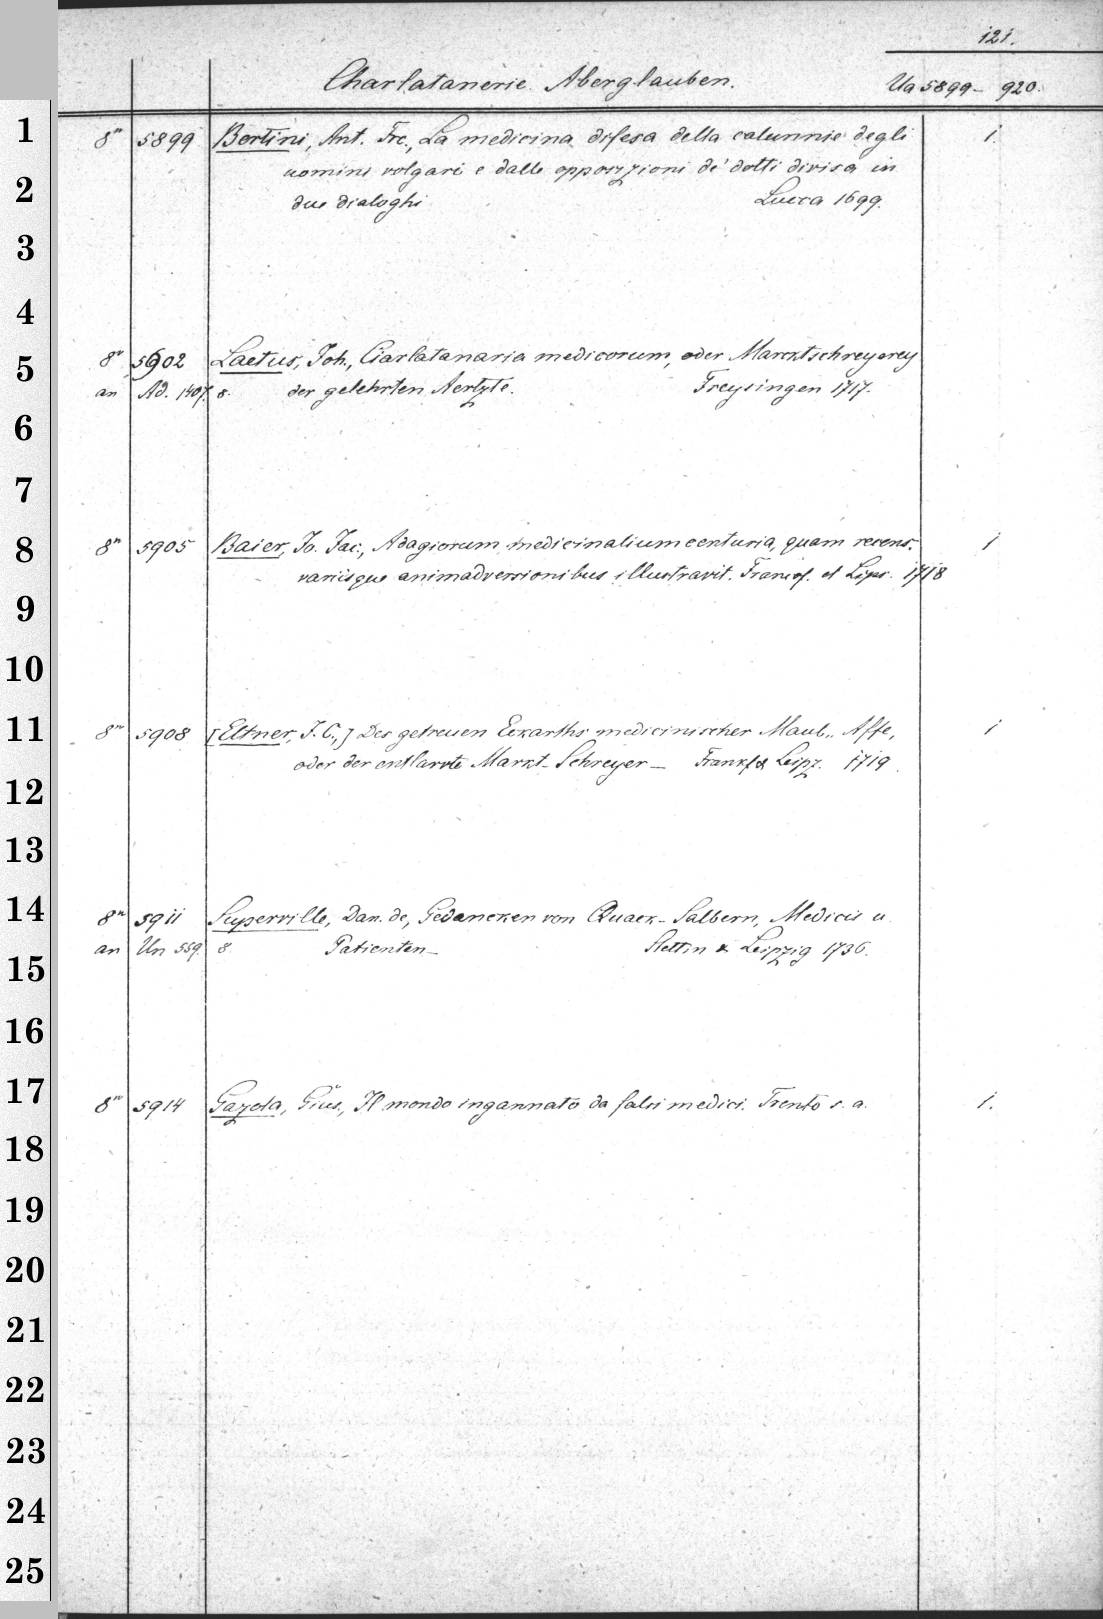 121.
Charlatanerie. Aberglauben. Ua 5899 – 920.
1
8° 5899 Bertini, Ant. Frc., La medicina difesa della calunnie degli 1.
uomini volgari e dalle opposizioni de' dotti divisa in
2
due dialoghi Lucca 1699.
3
4
8° 5902 Laetus, Joh., Ciarlatanaria medicorum, oder Marcktschreyerey
5
an Ad. 1407. 8. der gelehrten Aertzte. Freysingen 1717.
6
7
8° 5905 Baier, Jo. Jac., Adagiorum medicinalium centuria, quam recens. 1
8
variisque animadversionibus illustravit. Francof. et Lips. 1718
9
10
8° 5908 [Ettner, J. C.,] Des getreuen Eckarths medicinischer Maul-Affe, 1
11
oder der entlarvte Markt-Schreyer – Frankf & Leipz. 1719.
12
13
8° 5911 Superville, Dan. de, Gedancken von Quack-Salbern, Medicis u.
14
an Un 559. 8. Patienten – Stettin & Leipzig 1736.
15
16
8° 5914 Gazola, Gius., Il mondo ingannato da falsi medici. Trento s. a. 1.
17
18
19
20
21
22
23
24
25